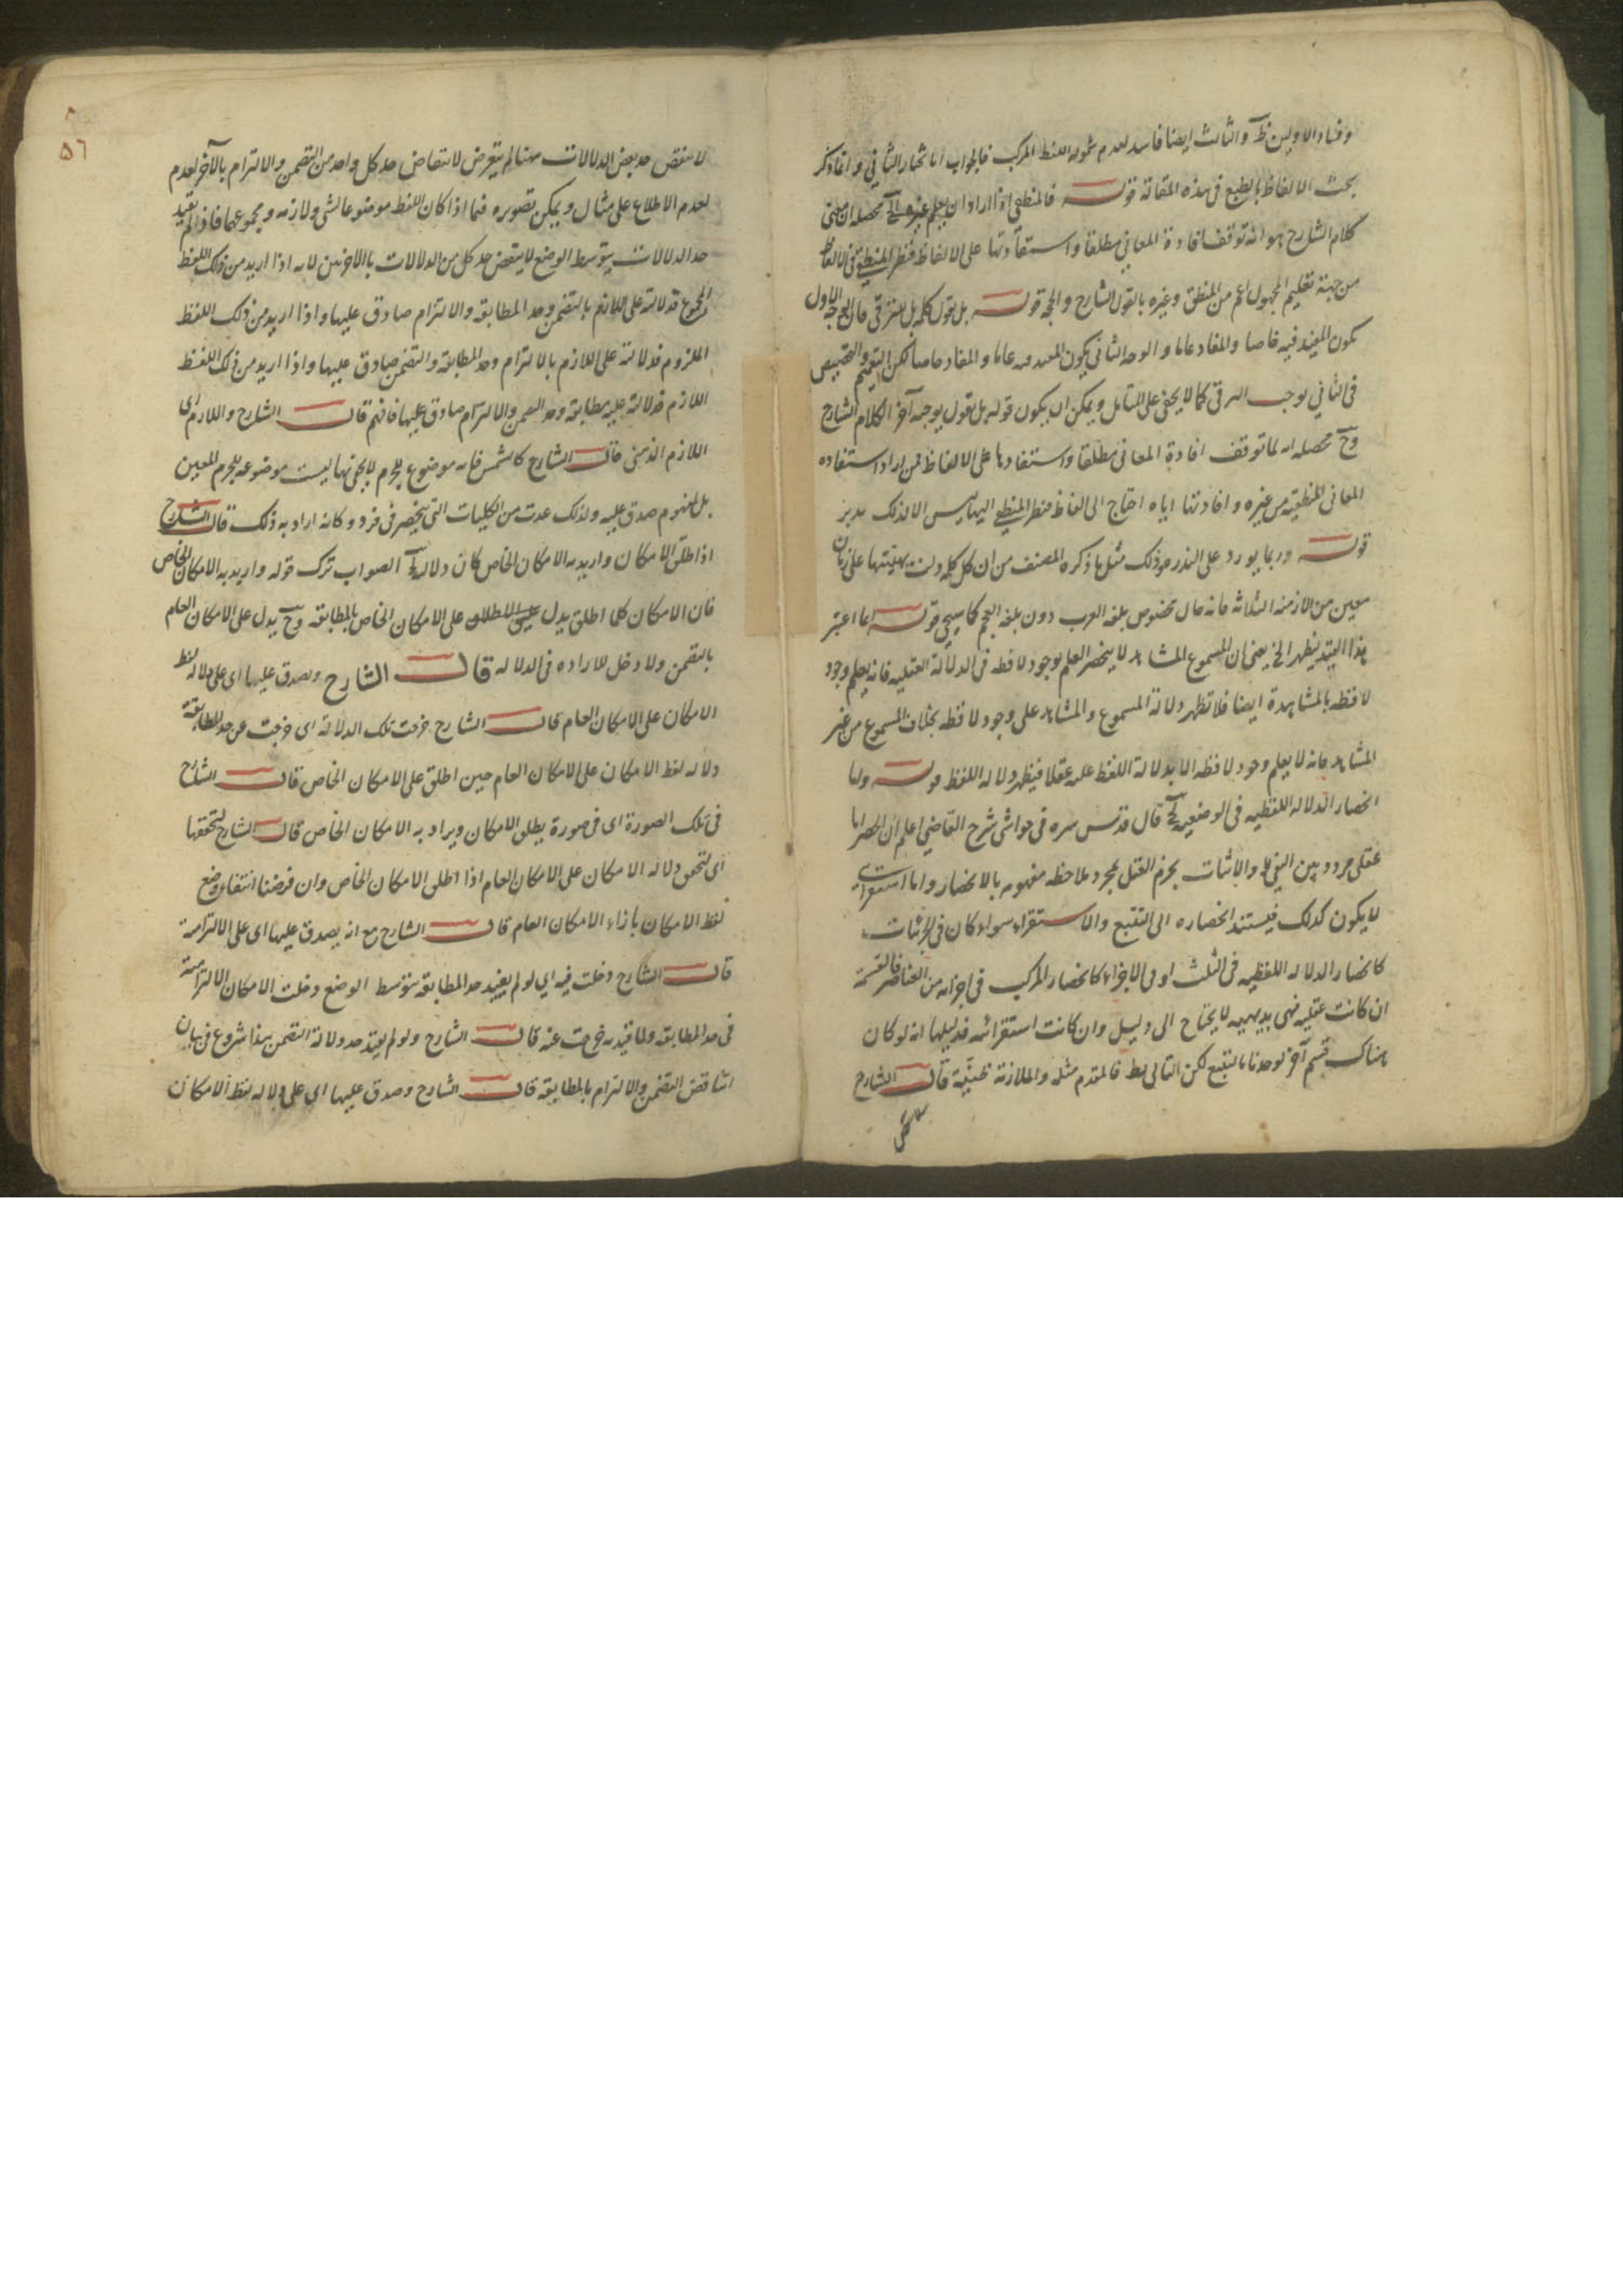 وفساد الاولين ظ والثالث ايضا فاسد لعدم شموله اللفظ المركب فالجواب انا نختار الثاني وانما ذكر
بحث الالفاظ بالطبع فى هذه المقالة قولـه فالمنطقى اذا اراد ان يعلم غيره الخ محصله ان معنى
كلام الشارح هو انه توقف افادة المعاني مطلقا واستفادتها على الالفاظ فنظر المنطقى فى الالفاظ
من جهة تعليم المجهول اعم من المنطق وغيره بالقول الشارح والحجة قولـه بل نقول كلمة بل للترقى فان الوجه الاول
يكون المفيد فيه خاصا والمفاد عاما والوجه الثانى يكون المفيد فيه عاما والمفاد خاصا لكن التعميم والتخصيص
فى الثاني يوجب الترقى كما لا يخفى على المتأمل ويمكن ان يكون قوله بل نقول توجيه آخر لكلام الشارح
وح محصله انه لما توقف افادة المعانى مطلقا واستفادتها على الالفاظ فمن اراد استفادة
المعانى المنطقية من غيره وافادتها اياه احتاج الى الفاظ فنظر المنطقى اليها ليس الا لذلك تدبر
قولـه وربما يورد على الندرة وذلك مثل ما ذكره المصنف من ان كل كلمة دلت بهيئتها على زمان
معين من الازمنة الثلاثة فانه حال مخصوص بلغة العرب دون بلغة العجم كما سيجي قولـه انما اعتبر
هذا القيد ليظهر الخ يعنى ان المسموع المشاهد لا ينحصر العلم بوجود لافظه فى الدلالة العقلية فانه يعلم وجود
لافظه بالمشاهدة ايضا فلا تظهر دلالة المسموع والمشاهد على وجود لافظه بخلاف المسموع من غير
المشاهد فانه لا يعلم وجود لافظه الا بدلالة اللفظ عليه عقلا فيظهر دلالة اللفظ قولـه ولما
انحصار الدلالة اللفظيه فى الوضعية الخ قال قدس سره فى حواشى شرح القاضي اعلم ان الحصر اما
عقلى مردد بين النفى والاثبات يجزم العقل بمجرد ملاحظة مفهومه بالانحصار واما استقرائى
لا يكون كذلك فيستند انحصاره الى التتبع والاستقراء سواء كان فى الجزئيات
كانحصار الدلالة اللفظيه فى الثلث او فى الاجزاء كانحصار المركب فى اجزائه من العناصر فالقسمة
ان كانت عقلية فهى بديهيه لا يحتاج الى دليل وان كانت استقرائيه فدليلها انه لو كان
هناك قسم آخر لوجدناه بالتتبع لكن التالى بط فالمقدم مثله والملازمة ظنية قالـ الشارح
لا ينتقض حد بعض الدلالات ههنا لم يتعرض لانتقاض حد كل واحد من التضمن والالتزام بالآخر لعدم
لعدم الاطلاع على مثال ويمكن تصويره فيما اذا كان اللفظ موضوعا لشى ولازمه ومجموعهما فاذا لم يقيد
حد الدلالات بتوسط الوضع لانتقض حد كل من الدلالات بالاخريين لانه اذا اريد من ذلك اللفظ
المجموع فدلالته على اللازم بالتضمن وحد المطابقة والالتزام صادق عليها واذا اريد من ذلك اللفظ
الملزوم فدلالته على اللازم بالالتزام وحد المطابقة والتضمن صادق عليها واذا اريد من ذلك اللفظ
اللازم فدلالته عليه مطابقة وحد التضمن والالتزام صادق عليها فافهم قالـ الشارح واللازم اى
اللازم الذهنى قالـ الشارح كالشمس فانه موضوع للجرم لا يخفى انها ليست موضوعه للجرم المعين
بل لمفهوم صدق عليه ولذلك عدت من الكليات التى ينحصر فى فرد وكانه اراد به ذلك قالـ الشارح
اذا اطلق الامكان واريد به الامكان الخاص كان دلالته الخ الصواب ترك قوله واريد به الامكان الخاص
فان الامكان كلما اطلق يدل على الامكان الخاص بالمطابقة وح يدل على الامكان العام
بالتضمن ولا دخل للارادة فى الدلالة قالـ الشارح وصدق عليها اى على دلالة لفظ
الامكان على الامكان العام قالـ الشارح خرجت تلك الدلالة اى خرجت عن حد المطابقة
دلالة لفظ الامكان على الامكان العام حين اطلق على الامكان الخاص قالـ الشارح
فى تلك الصورة اى فى صورة يطلق الامكان ويراد به الامكان الخاص قالـ الشارح لتحققها
اى لتحقق دلالة الامكان على الامكان العام اذا اطلق الامكان الخاص وان فرضنا انتفاء وضع
لفظ الامكان بازاء الامكان العام قالـ الشارح مع انه يصدق عليها اى على الالتزامية
قالـ الشارح دخلت فيه اى لو لم يقيد حد المطابقة بتوسط الوضع دخلت الامكان الالتزامية
فى حد المطابقه ولما قيد به خرجت عنه قالـ الشارح ولو لم يقيد حد دلالة التضمن هذا شروع فى بيان
انتقاض التضمن والالتزام بالمطابقة قالـ الشارح وصدق عليها اى على دلالة لفظ الامكان
٥٦